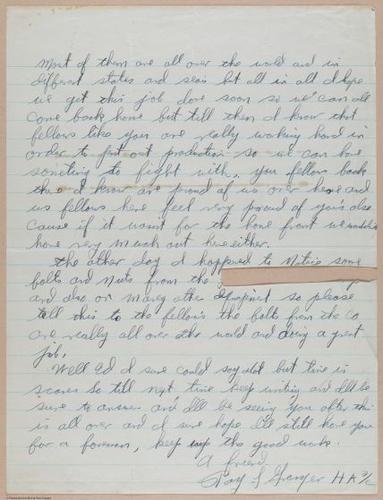 most of them are all over the world and in
different states and seas but all in all I hope
we get this job done soon so we can all
come back home but till then I know that
fellows like you are really working hard in
order to put out production so we can have
something to fight with, you fellows back
there I know are proud of us over here and
us fellows here feel very proud of you's also
cause if it wasnt for the home front we wouldn't
have very much out here either.
the other day I happened to notice some
bolts and nuts from the
and also on many other so please
tell this to the fellows the bolts from the Co
are really all over the world and doing a great
job.
Well Ed I sure could say a lot but time is
scarce so till next time keep writing and I'll be
sure to answer and I'll be seeing you after this
is all over and I sure hope I'll still have you
for a foreman, keep up the good work.
A friend
Ray L Granger HA 2/c